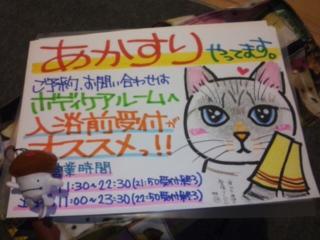 あかすりやってます。
ご予約、お問い合わせは
ボディケアルームへ
入浴前受付が
オススメっ!!
営業時間
11:30~22:30(21:50受付終了)
11:00~23:30(22:50受付終了)